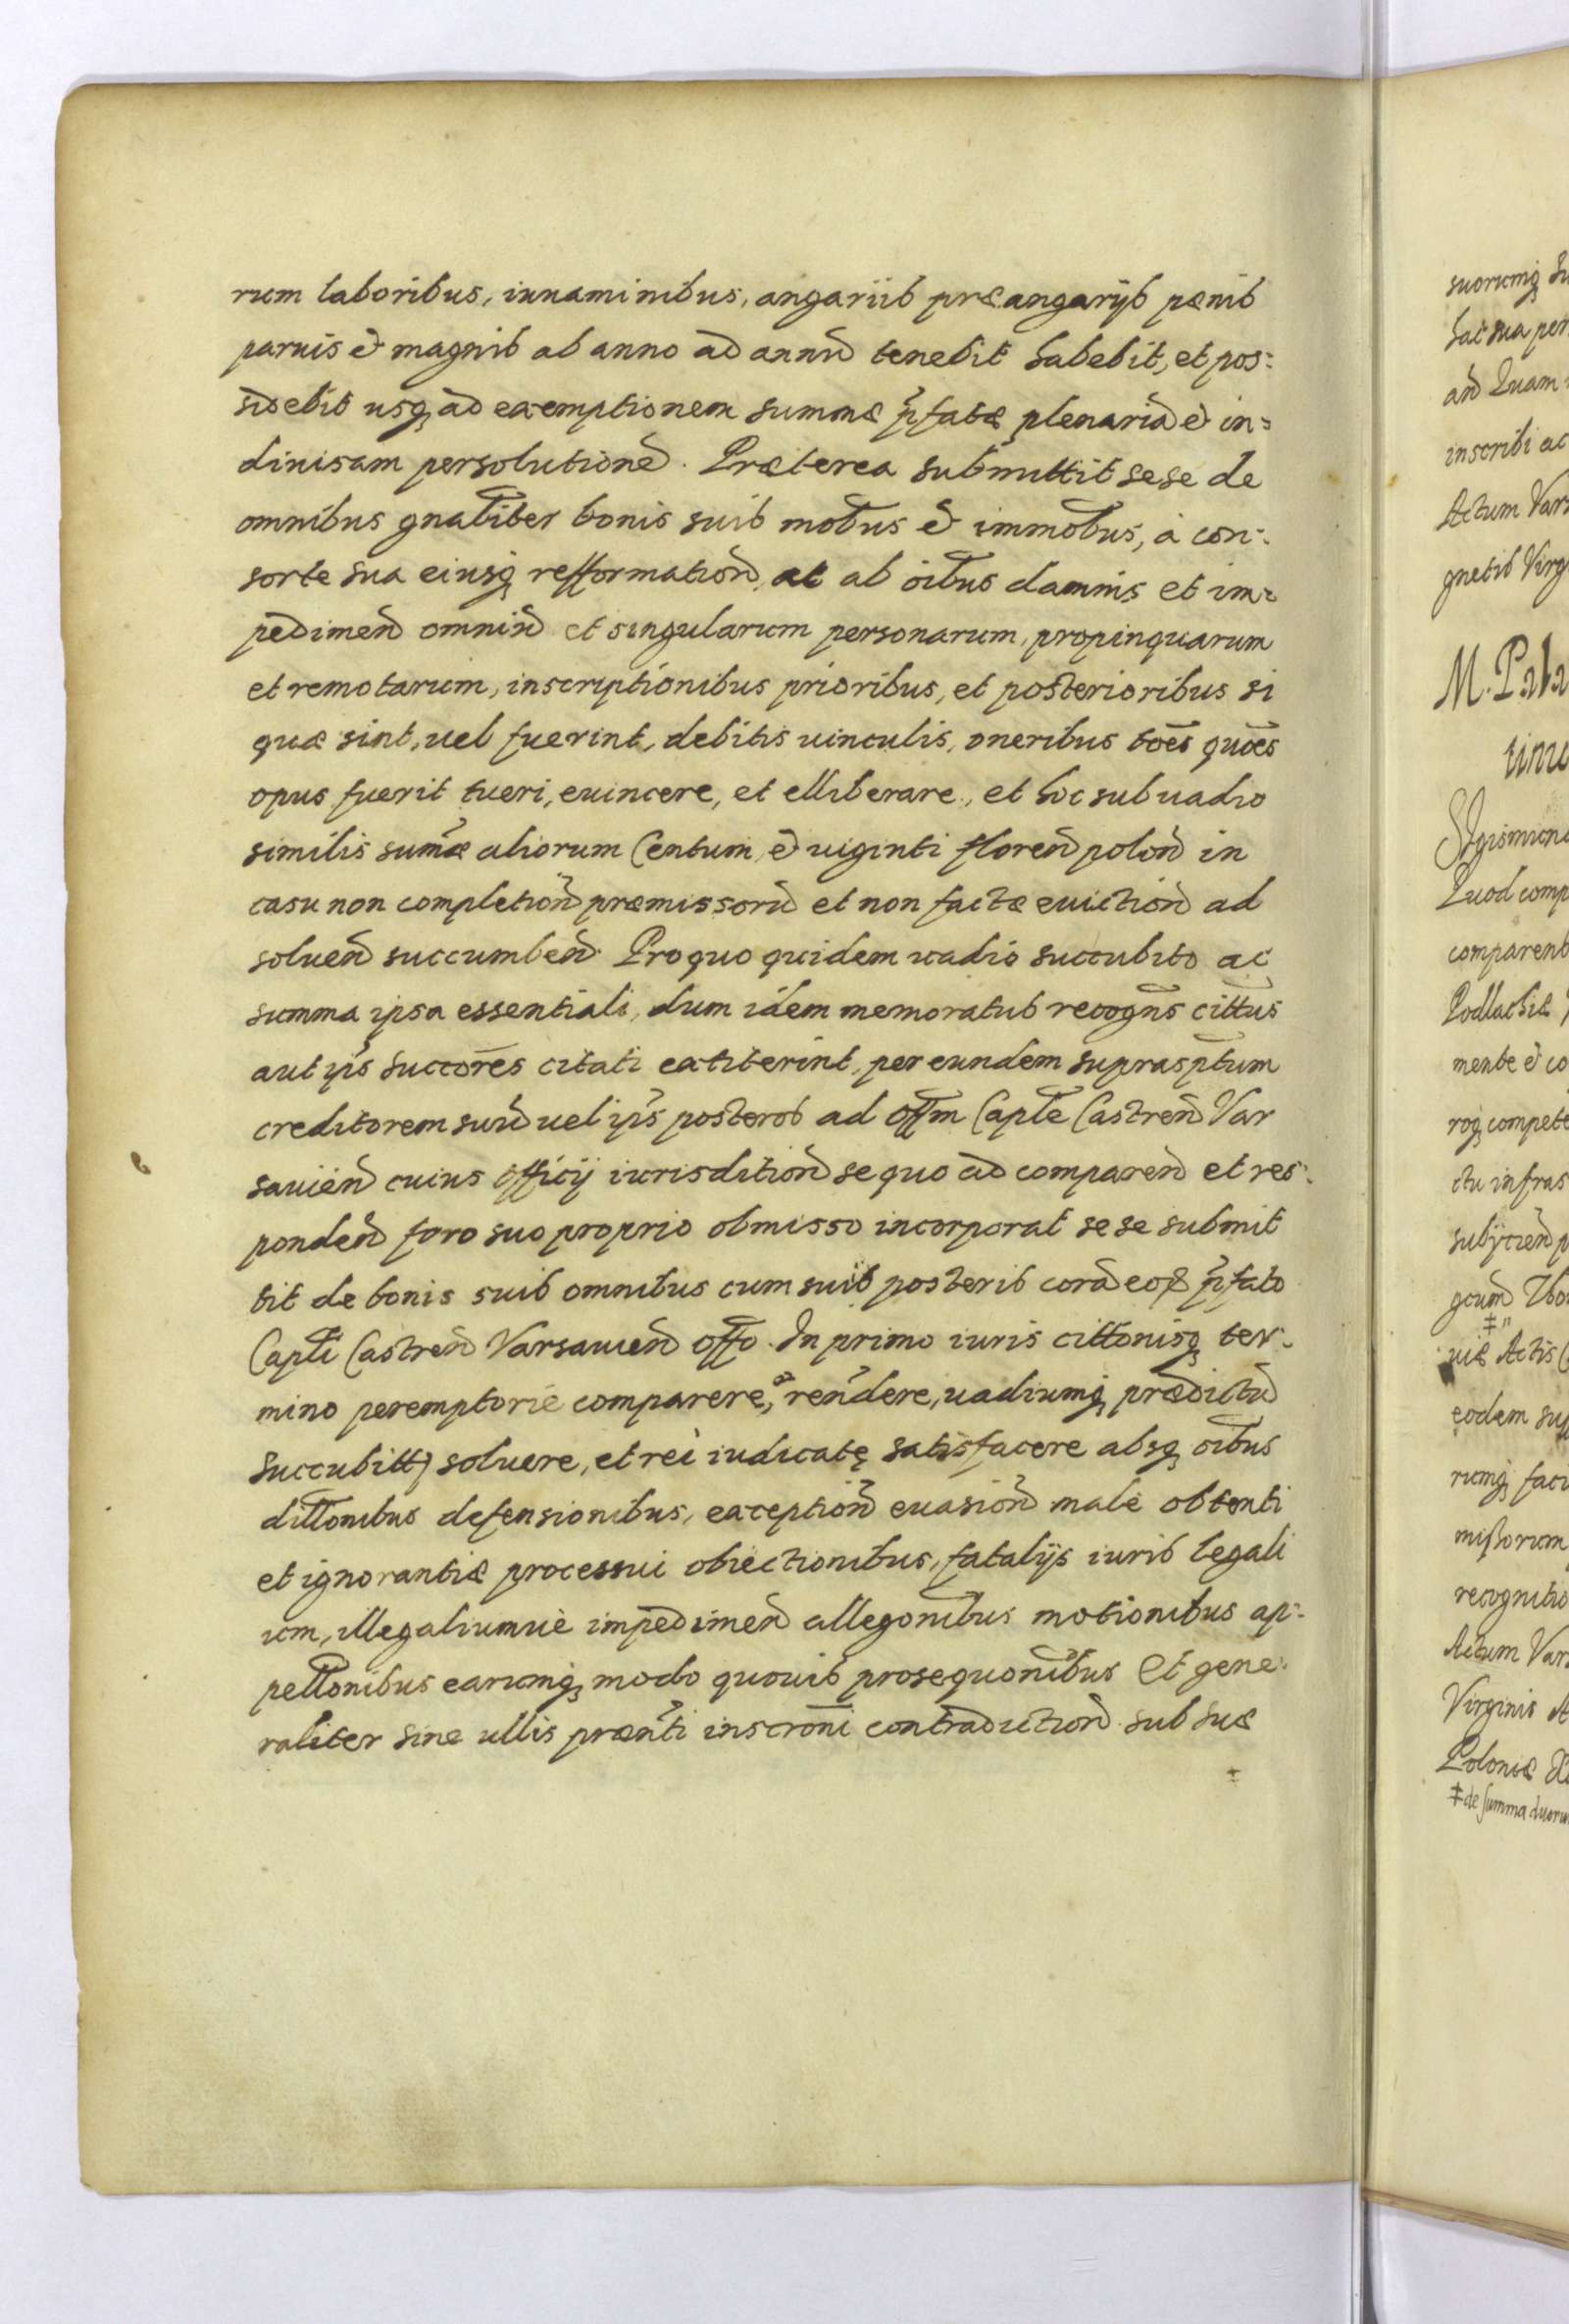 rum laboribus, iuuaminibus, angariis præangarijs pænis
paruis et magnis ab anno ad annū tenebit habebit, et pos:
sidebit usq ad exemptionem summæ p̃fatæ plenariā et in:
diuisam persolutionē. Præterea submittit sese de
omnibus gnaliter bonis suis mobus et immobus, à con:
sorte sua eiusq refformation̄ ac ab oibus damnis et im:
pedimen̄ omniū et singularum personarum, propinquarum
et remotarum, inscriptionibus prioribus, et posterioribus si
quæ sint, uel fuerint, debitis uinculis, oneribus toēs quoēs
opus fuerit tueri, euincere, et elliberare, et hoc sub uadio
similis sumæ aliorum Centum, et uiginti floren̄ polon̄ in
casu non completion̄ præmissorū et non factæ euiction̄ ad
soluen̄ succumben̄. Pro quo quidem uadio succubito ac
summa ipsa essentiali, dum idem memoratus recogn̄s cittus
aut ip̄s succōres citati extiterint, per eundem suprasptum
creditorem suū uel ip̄s posteros ad offm Caple Castren̄ Var
sauien̄ cuius officij iurisdition̄ se quo ad comparen̄ et res:
ponden̄ foro suo proprio obmisso incorporat sese submit
tit de bonis suis omnibus cum suis posteris corā eod p̃fato
Capli Castren̄ Varsauien̄ offo. In primo iuris cittonisq ter:
mino peremptorie comparere, rendere, uadiumq prædictū
succubitt soluere, et rei iudicatę satisfacere absq oibus
dittonibus defensionibus, exception̄ euasion̄ male obtenti
et ignorantiæ processui obiectionibus, fatalijs iuris legali
um, illegaliumue impedimen̄ allegonibus motionibus ap:
pellonibus earumq modo quouis prosequonibus Et gene:
raliter sine ullis præn̄ti inscrōni contradiction̄ sub suæ
‡
suorumq
hac sua per
an̄ Quam
inscribi ac
Actum Vars
gnetis Virg
M. Pala
Sigismun
Quod comp
comparent
Podlachiæ
mente et co
roq compete
ctu infras
subijcien̄ p
‡
uiæ Actis
eodem sup
rumq faci
missorum
recognitio
Actum Vars
Virginis
Poloniæ
‡ de summa duoru